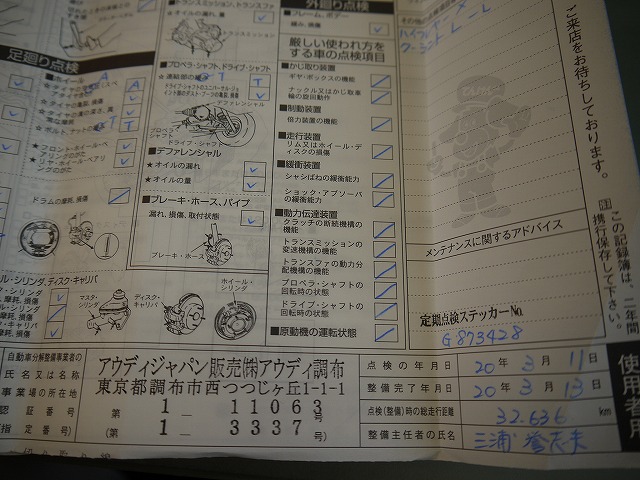 トランスミッション、トランスファ
★オイルの漏れ、量
外廻り点検
■フレーム、ボデー
緩み、損傷
厳しい使われ方を
する車の点検項目
■かじ取り装置
ギヤ・ボックスの機能
ナックル又はかじ取車
輪の旋回動作
■制動装置
倍力装置の機能
■走行装置
リム又はホイール・デ
ィスクの損傷
■緩衝装置
シャシばねの緩衝能力
ショック・アブソーバ
の緩衝能力
■動力伝達装置
クラッチの断続機構の
機能
トランスミッションの
変速機構の機能
トランスファの動力分
配機構の機能
プロペラ・シャフトの
回転時の状態
ドライブ・シャフトの
回転時の状態
■原動機の運転状態
足廻り点検
■ホイール
■プロペラ・シャフト、ドライブ・シャフト
★連結部の緩み
T
ドライブ・シャフトのユニバーサル・ジョ
イント部のダスト・ブーツの亀裂、損傷
デファレンシャル
プロペラ・
シャフト
ドライブ・シャフト
■デファレンシャル
★オイルの漏れ
★オイルの量
■ブレーキ・ホース、パイプ
漏れ、損傷、取付状態
ブレーキ・ホース
ドラムの摩耗、損傷
ル・シリンダ、ディスク・キャリパ
マスタ・
シリンダ
ディスク・
キャリパ
ホイール・
シリンダ
ご来店をお待ちしております。
メンテナンスに関するアドバイス
定期点検ステッカーNo.
G873428
注 この記録簿は、二年間
携行保存して下さい。
使用者用
自動車分解整備事業者の
氏名又は名称
アウディジャパン販売㈱アウディ調布
事業場の所在地
東京都調布市西つつじヶ丘1-1-1
認証番号
第 1 — 11063 号
(指定番号)
(第 1 — 3337 号)
点検の年月日
20年3月11日
整備完了年月日
20年3月13日
点検(整備)時の総走行距離
32.636 km
整備主任者の氏名